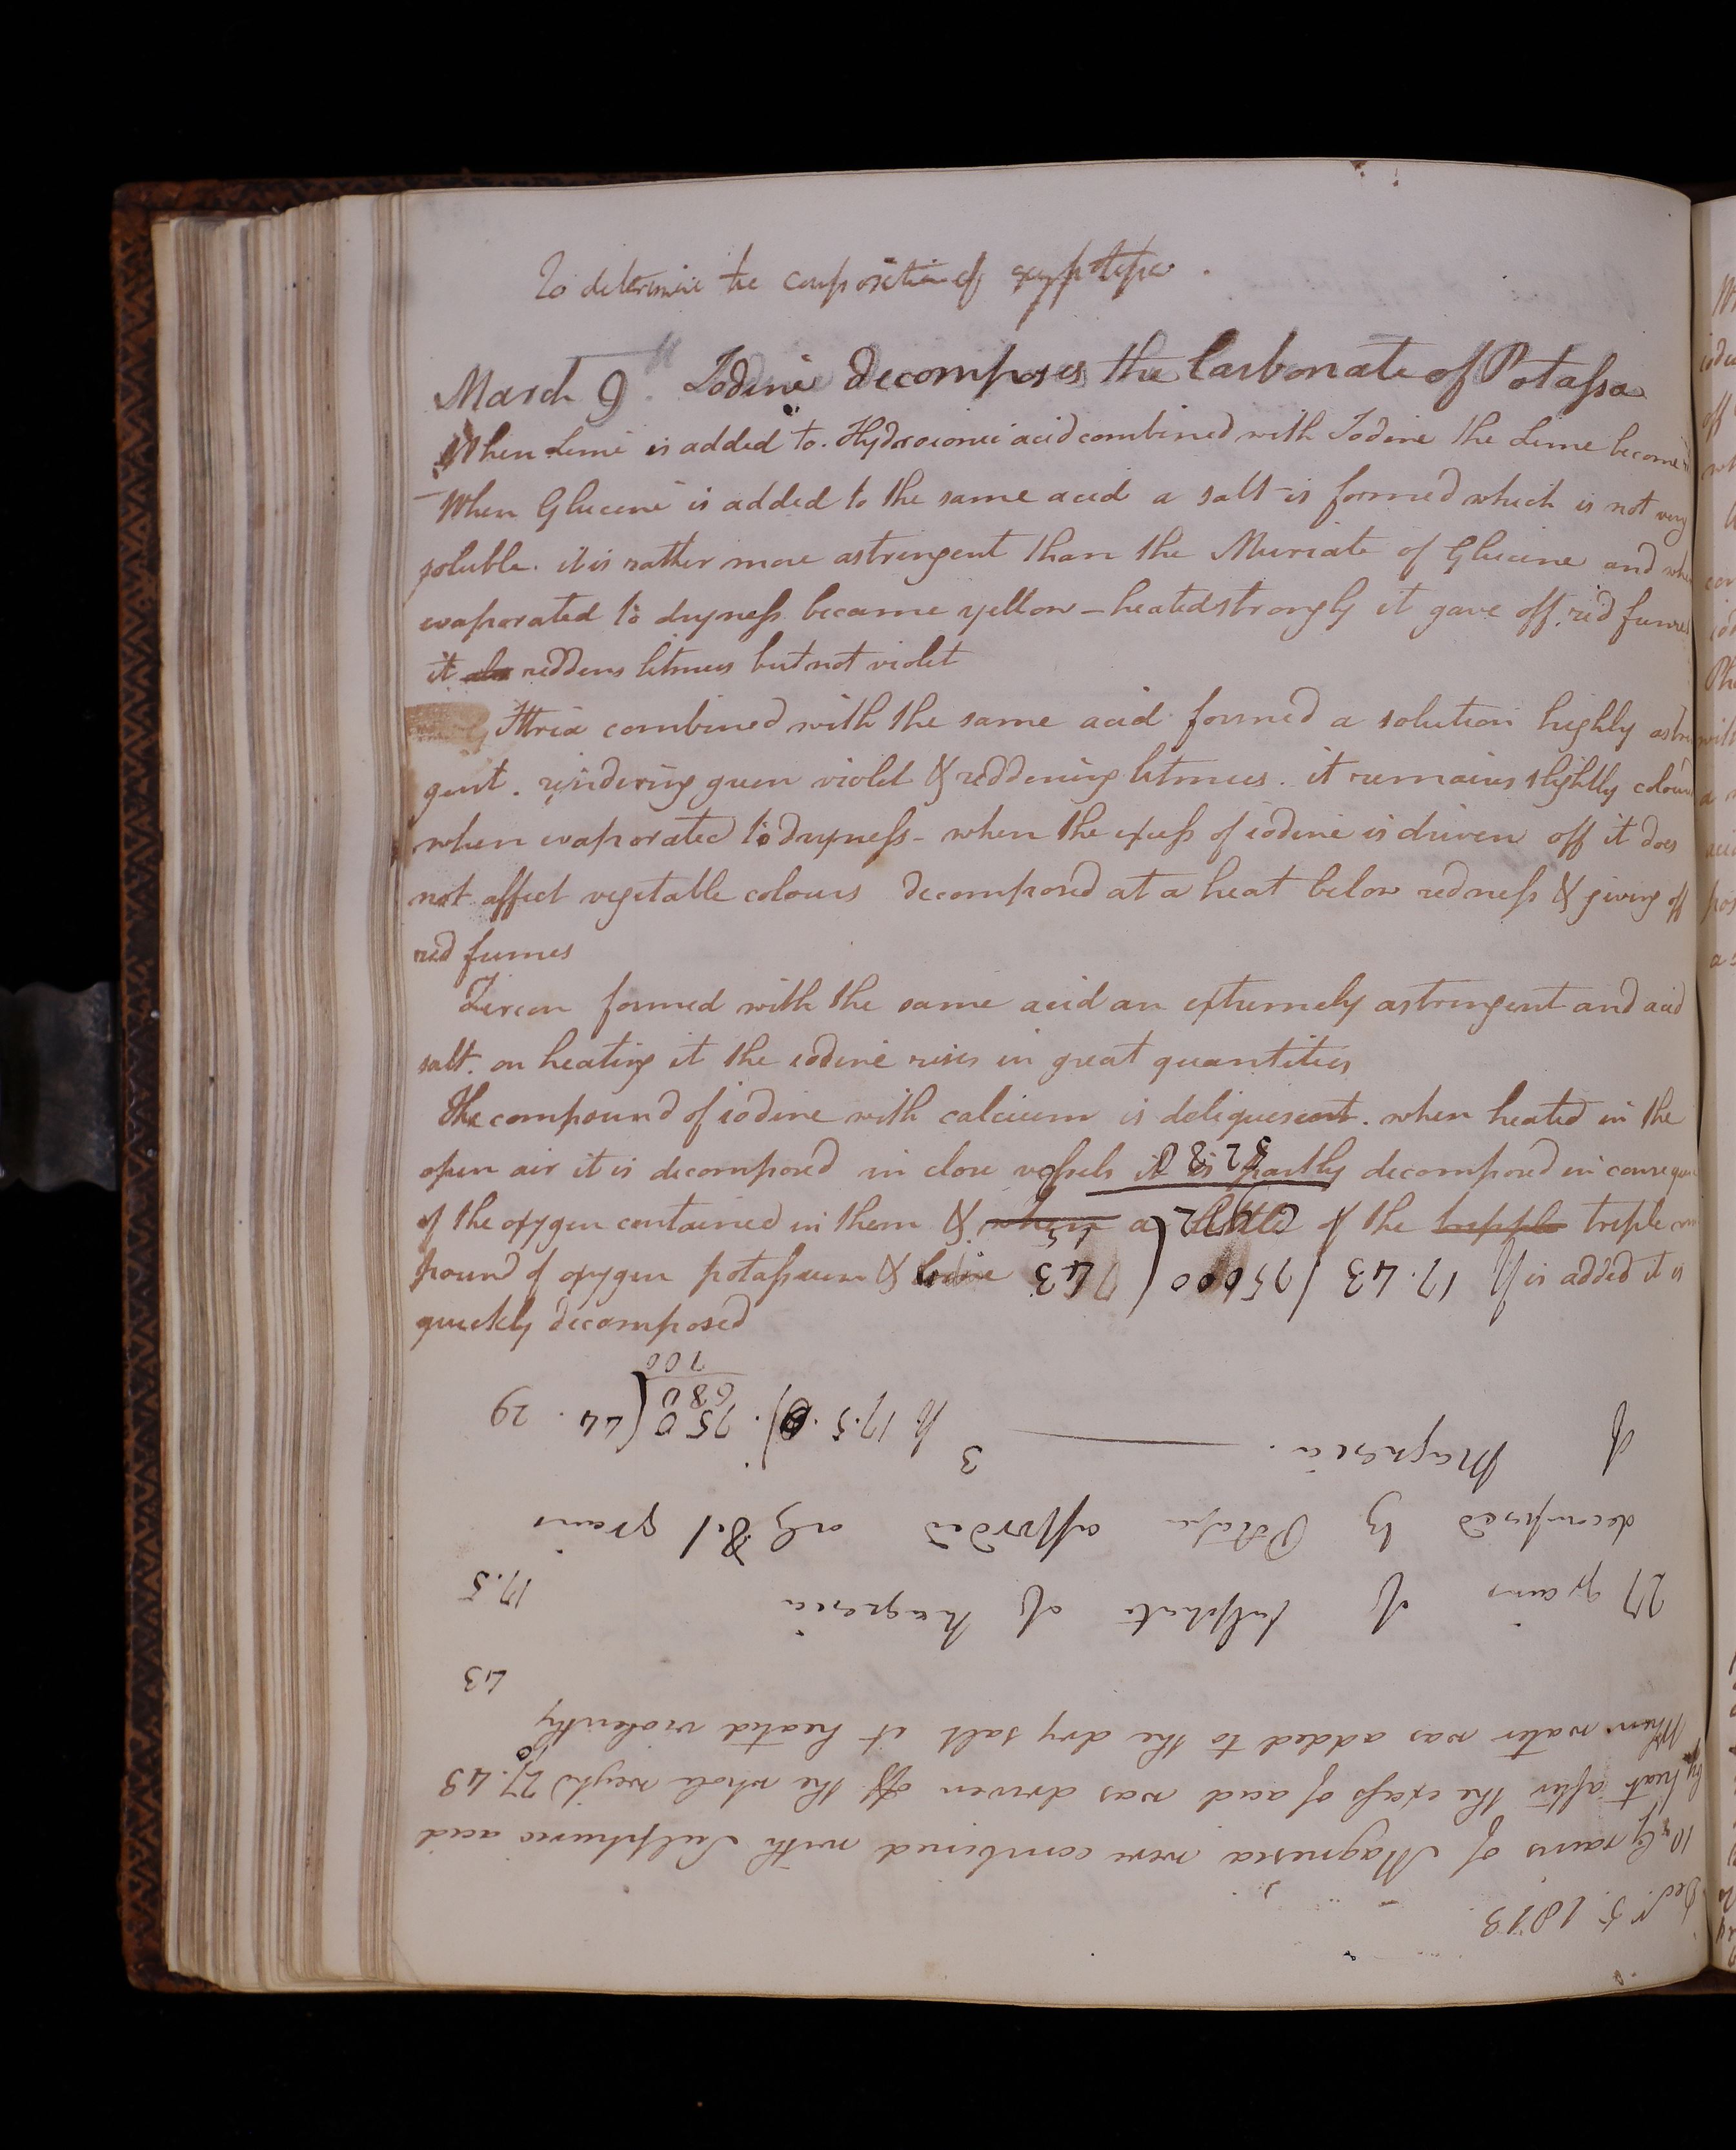 To determine the composition of oxypotassa.
March 9. Iodine decomposes the Carbonate of Potassa
When Lime is added to Hydroionic acid combined with Iodine the Lime become
When Glucine is added to the same acid a salt is formed which is not very
soluble. it is rather more astringent than the Muriate of Glucine and when
evaporated to dryness became yellow - heated strongly it gave off red fumes
it reddens litmus but not violet
Ittria combined with the same acid formed a solution highly astrin
gent. rendering green violet & reddening litmus. it remains slightly colour
when evaporated to dryness - when the excess of iodine is driven off it does
not affect vegetable colours decomposed at a heat below redness & giving off
red fumes
Zircon formed with the same acid an extremely astringent and acid
salt. on heating it the iodine rises in great quantities
The compound of iodine with calcium is deliquescent. when heated in the
open air it is decomposed in close vessels it is partly decomposed in consequen
of the oxygen contained in them & when a little of the tripple triple com
pound of oxygen potassium & Iodine is added it is
quickly decomposed
Decr. 5. 1813
10 Grains of Magnesia were combined with Sulphuric acid
by heat after the excess of acid was driven off the whole weighd 27.43
When water was added to the dry salt it heated violently
43
27 grains of sulphate of magnesia
17.5
decomposed by Potassa afforded only 8.1 grains
of Magnesia.
3
17.5.0). 750 (44. 29
680
700
17.43 / 75000 ( 743
5288